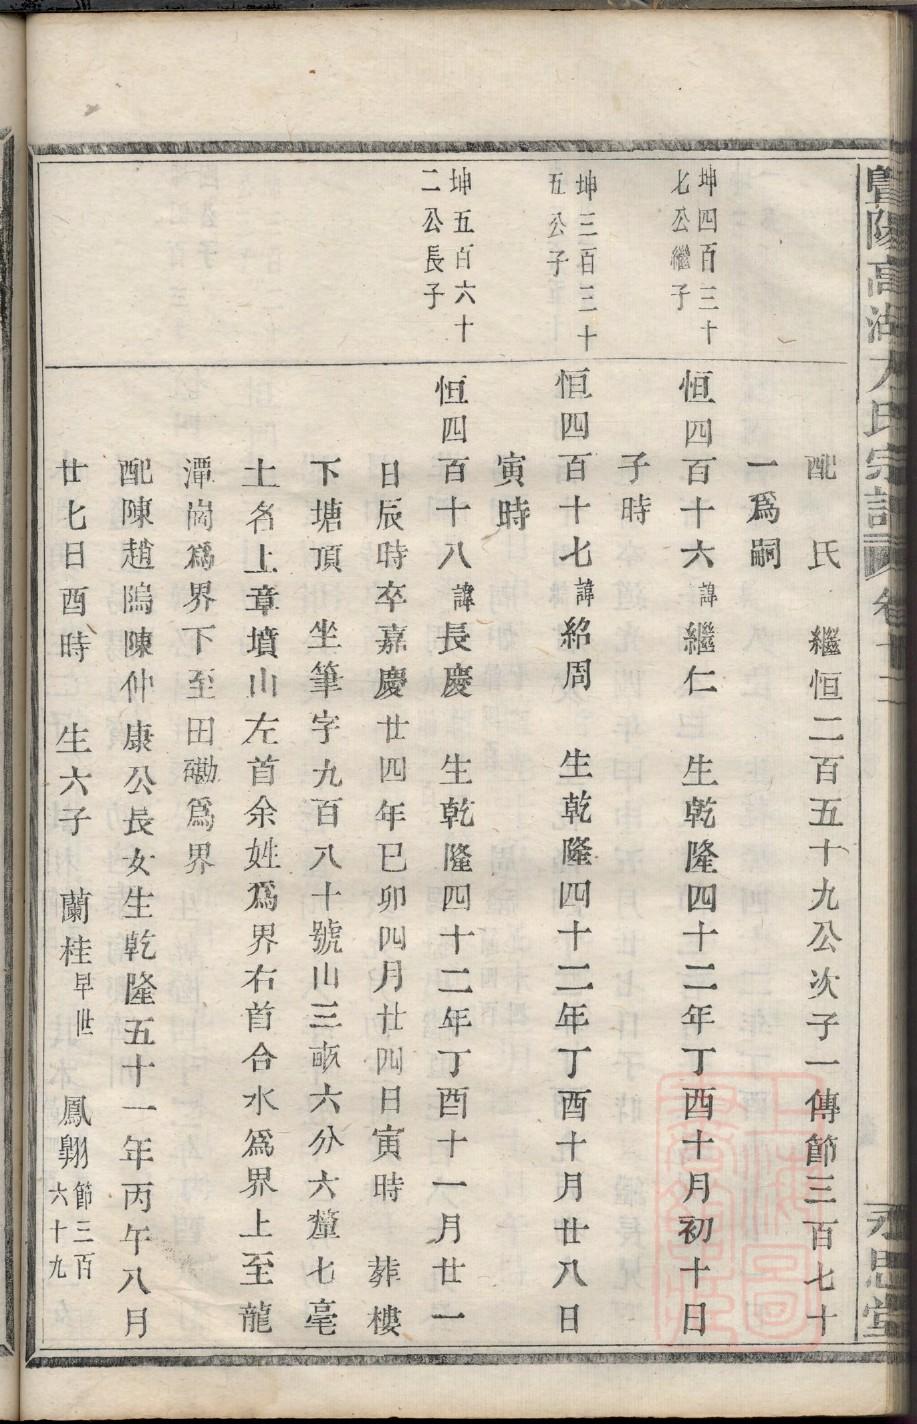 暨陽高湖方氏宗譜 卷十二 永思堂
配 氏 繼恒二百五十九公次子一傳節三百七十
一爲嗣
坤四百三十
七公繼子
恒四百十六諱繼仁 生乾隆四十二年丁酉十月初十日
子時
坤三百三十
五公子
恒四百十七諱紹周 生乾隆四十二年丁酉十月廿八日
寅時
坤五百六十
二公長子
恒四百十八諱長慶 生乾隆四十二年丁酉十一月廿一
日辰時卒嘉慶廿四年巳卯四月廿四日寅時 葬樓
下塘頂 坐筆字九百八十號山三畝六分六釐七毫
土名上章墳山左首余姓爲界右首合水爲界上至龍
潭崗爲界下至田磡爲界
配陳趙隖陳仲康公長女生乾隆五十一年丙午八月
廿七日酉時 生六子 蘭桂早世 鳳翺節三百
六十九